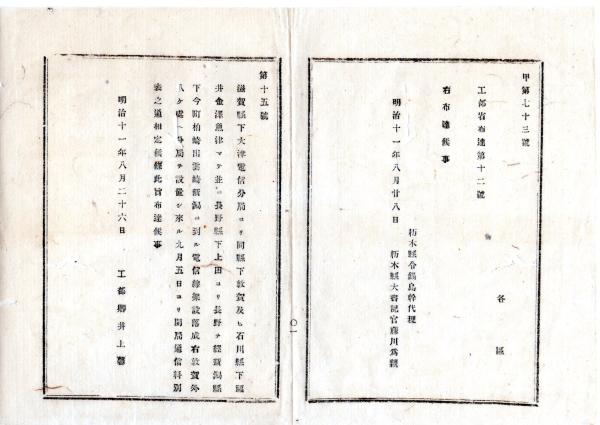 甲第七十三號
各區
工部省布達第十二號
右布達候事
明治十一年八月廿八日
栃木縣令鍋島幹代理
栃木縣大書記官藤川爲親
〇一
第十五號
滋賀縣下大津電信分局ヨリ同縣下敦賀及ヒ石川縣下
井金澤魚津マテ並ニ長野縣下上田ヨリ長野ヲ經新潟縣
下今町柏崎出雲崎新潟ニ到ル電信線架設落成右敦賀外
八ケ處ヘ分局ヲ設置シ來ル九月五日ヨリ開局通信料別
表之通相定候條此旨布達候事
明治十一年八月二十六日
工部卿井上馨